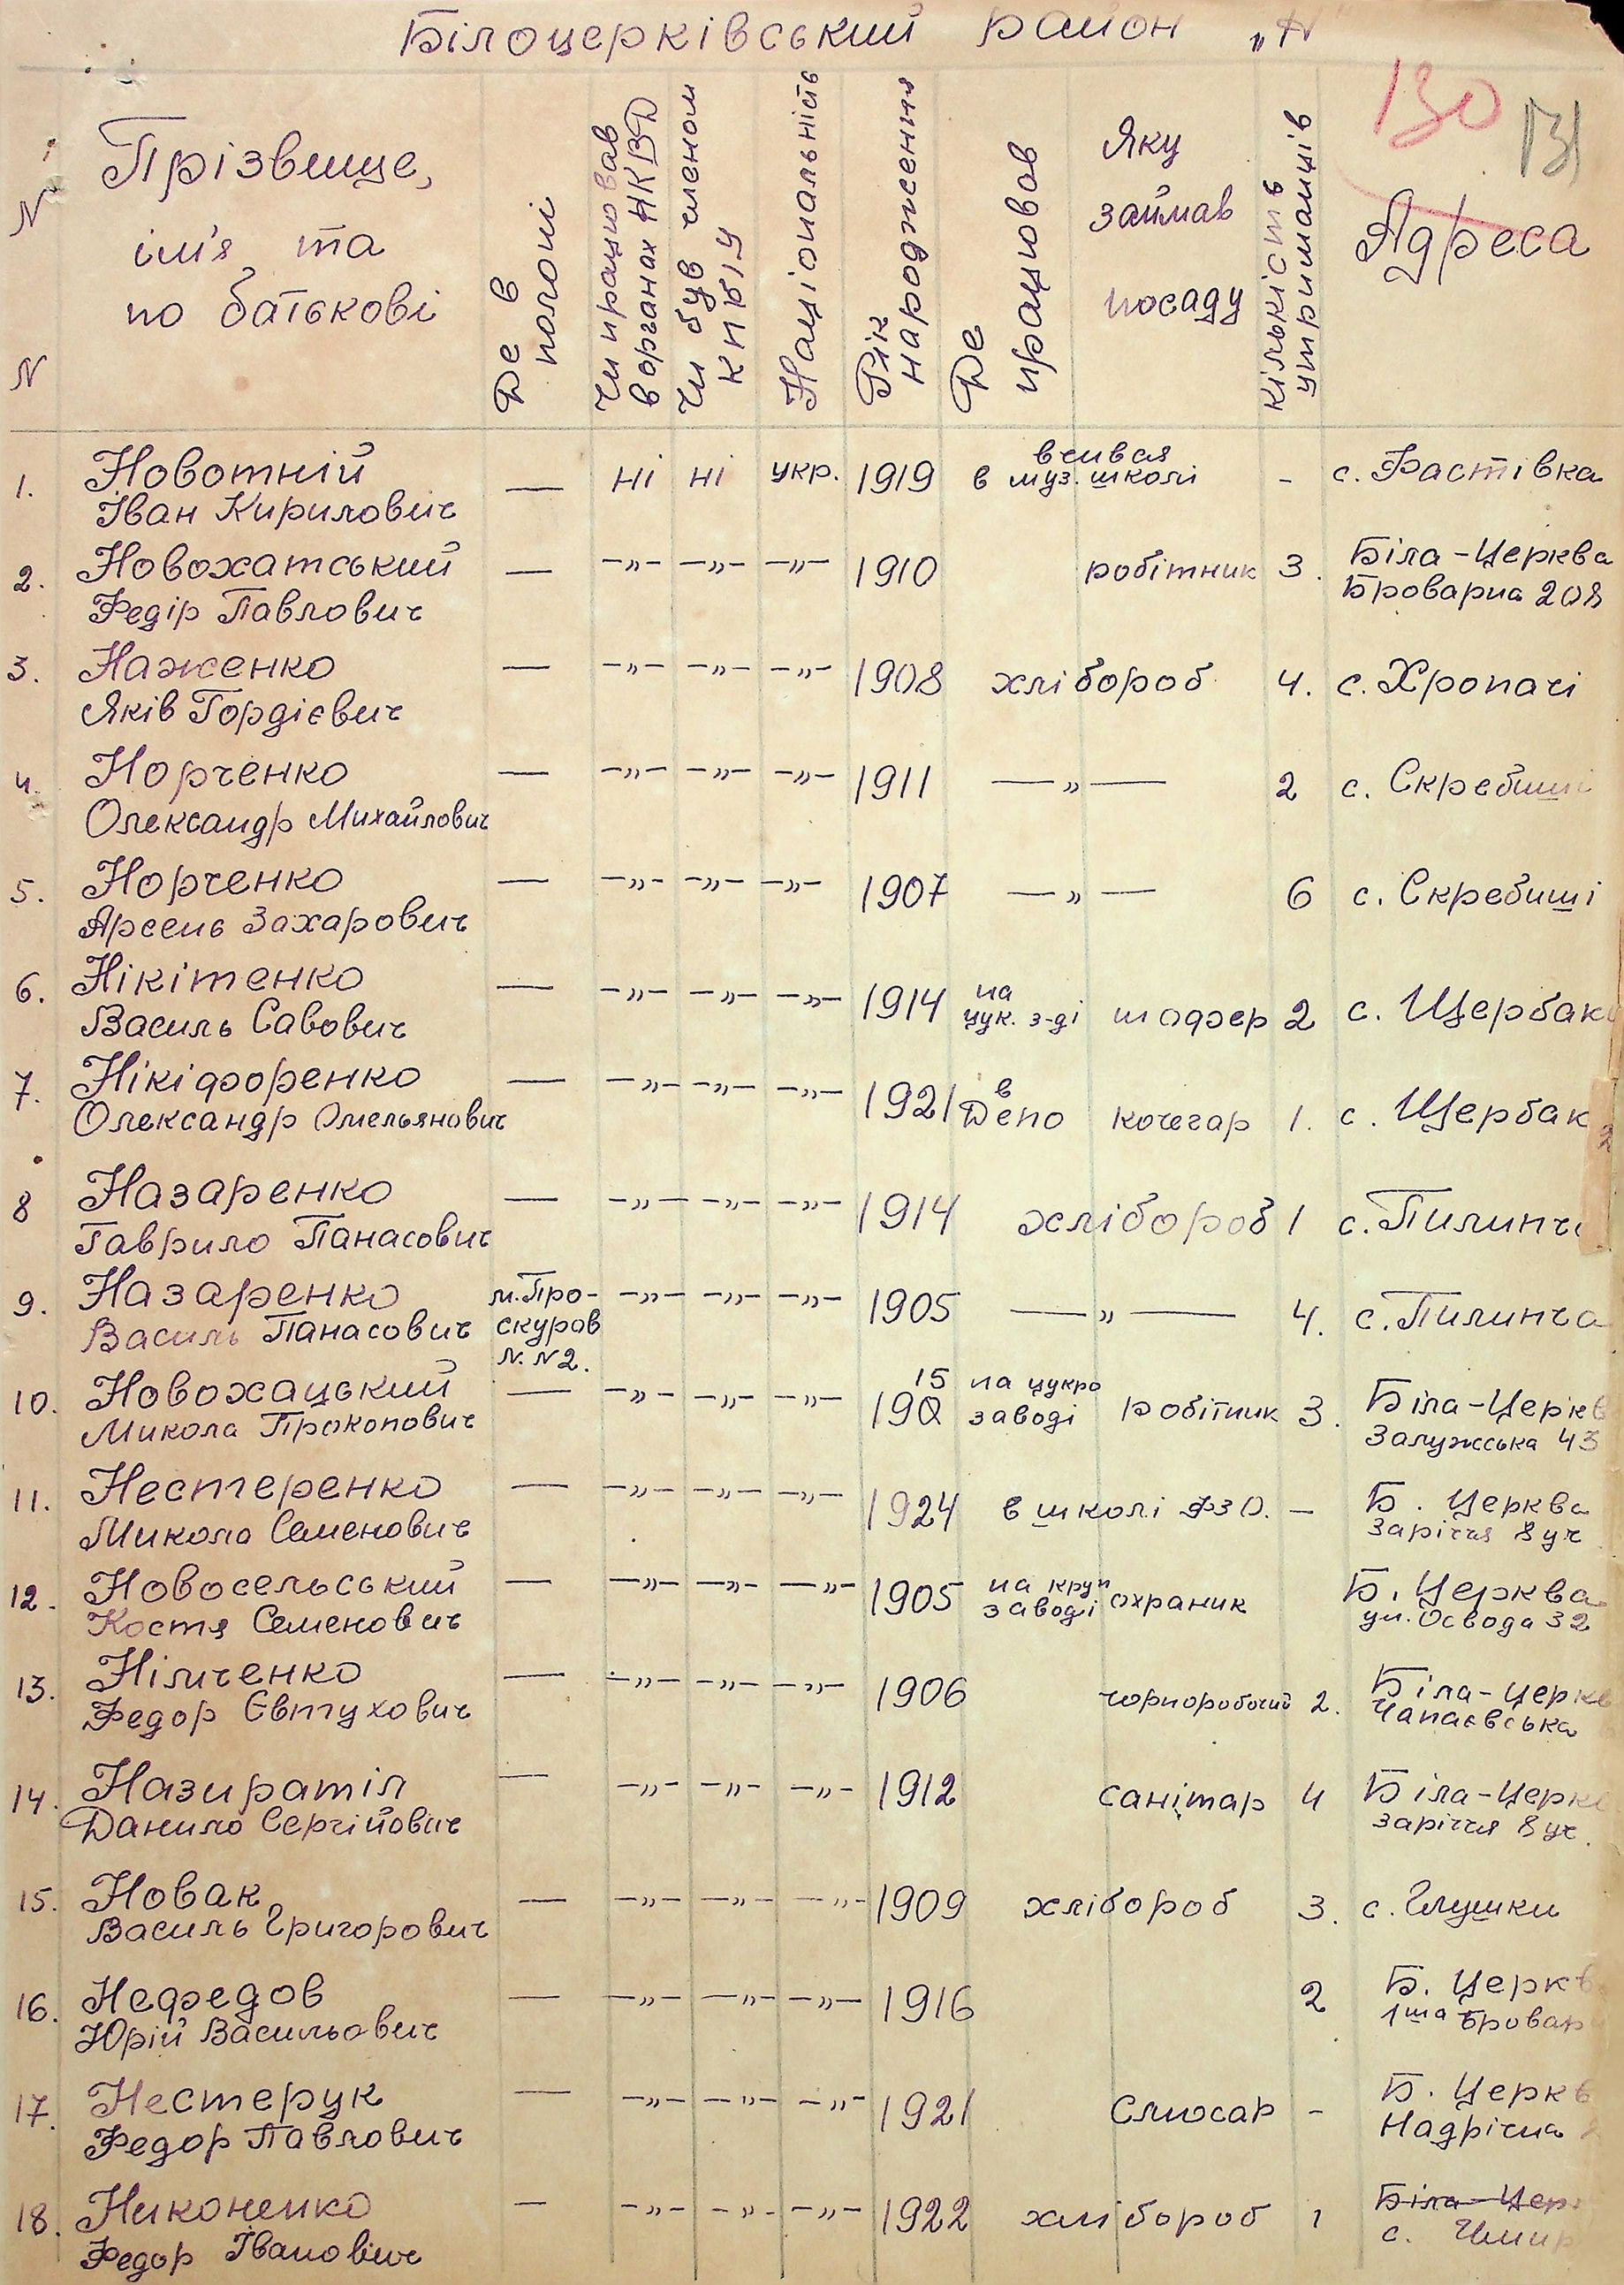 Білоцерківський район „Н"
130 131
N N
Прізвище,
ім'я та
по батькові
Де в полоні
Чи працював в органах НКВД
Чи був членом КПб/У
Національність
Рік народження
Де працював
Яку займав посаду
кількість утриманців
Адреса
1. Новотній — ні ні укр. 1919 вчився в муз. школі - с. Фастівка
Іван Кирилович
2. Новохатський — -„- -„- -„- 1910 робітник 3. Біла-Церква
Федір Павлович Броварна 208
3. Наженко — -„- -„- -„- 1908 хлібороб 4. с. Хропачі
Яків Гордієвич
4. Норченко — -„- -„- -„- 1911 —„— 2 с. Скребиші
Олександр Михайлович
5. Норченко — -„- -„- -„- 1907 —„— 6 с. Скребиші
Арсень Захарович
6. Нікітенко — -„- -„- -„- 1914 на цук. з-ді шофер 2 с. Щербаки
Василь Савович
7. Нікіфоренко — -„- -„- -„- 1921 в Депо кочегар 1. с. Щербак
Олександр Омельянович
8 Назаренко — -„- -„- -„- 1914 хлібороб 1 с. Пилипча
Гаврило Панасович
9. Назаренко м. Про- -„- -„- -„- 1905 —„— 4. с. Пилипча
Василь Панасович скуров
N. N 2.
10. Новохацький — -„- -„- -„- 1915 на цукро заводі робітник 3. Біла-Церкв
Микола Прокопович Залужська 43
11. Нестеренко — -„- -„- -„- 1924 в школі ФЗО. — Б. Церква
Микола Семенович Заріччя 8 уч
12. Новосельський — -„- -„- -„- 1905 на круп заводі охраник Б. Церква
Костя Семенович ул. Освода 32
13. Німченко — -„- -„- -„- 1906 чорноробочий 2. Біла-Церкв
Федор Євтухович Чапаєвська
14. Назиратіл — -„- -„- -„- 1912 санітар 4 Біла-Церкв
Данило Сергійовіч заріччя 8 уч.
15. Новак — -„- -„- -„- 1909 хлібороб 3. с. Глушки
Василь Григорович
16. Нефедов — -„- -„- -„- 1916 2 Б. Церкв
Юрій Васильович 1ша Бровар
17. Нестерук — -„- -„- -„- 1921 слюсар - Б. Церкв
Федор Павлович Надрічна
18. Никоненко — -„- -„- -„- 1922 хлібороб 1 Біла-Цер
Федор Івановіч с. Чмир